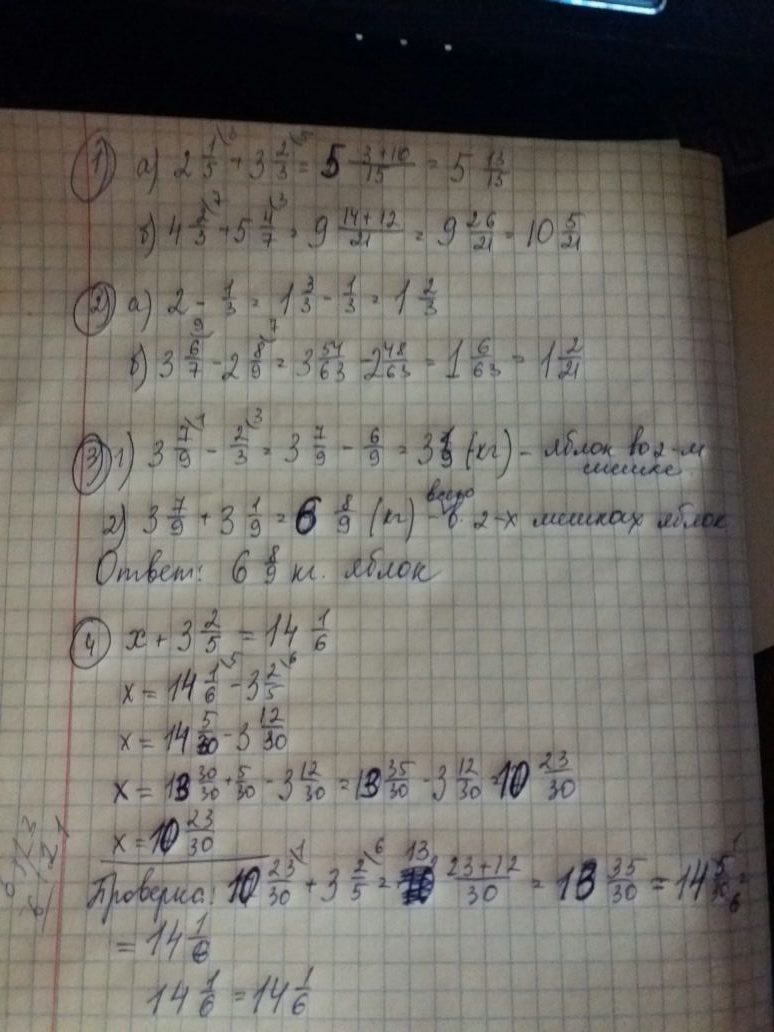 1) а) 2 1/5 \3 + 3 2/3 \5 = 5 3+10/15 = 5 13/15
б) 4 2/3 \7 + 5 4/7 \3 = 9 14+12/21 = 9 26/21 = 10 5/21
2) а) 2 - 1/3 = 1 3/3 - 1/3 = 1 2/3
б) 3 6/7 \9 - 2 8/9 \7 = 3 54/63 - 2 48/63 = 1 6/63 = 1 2/21
3) 1) 3 7/9 \1 - 2/3 \3 = 3 7/9 - 6/9 = 3 1/9 (кг) - яблок во 2-м
мешке.
2) 3 7/9 + 3 1/9 = 6 8/9 (кг) - всего в 2-х мешках яблок
Ответ: 6 8/9 кг. яблок
4) x + 3 2/5 = 14 1/6
x = 14 1/6 \5 - 3 2/5 \6
x = 14 5/30 - 3 12/30
x = 13 30/30 + 5/30 - 3 12/30 = 13 35/30 - 3 12/30 = 10 23/30
x = 10 23/30
Проверка: 10 23/30 \1 + 3 2/5 \6 = 13 23+12/30 = 13 35/30 = 14 5/30 =
= 14 1/6
14 1/6 = 14 1/6